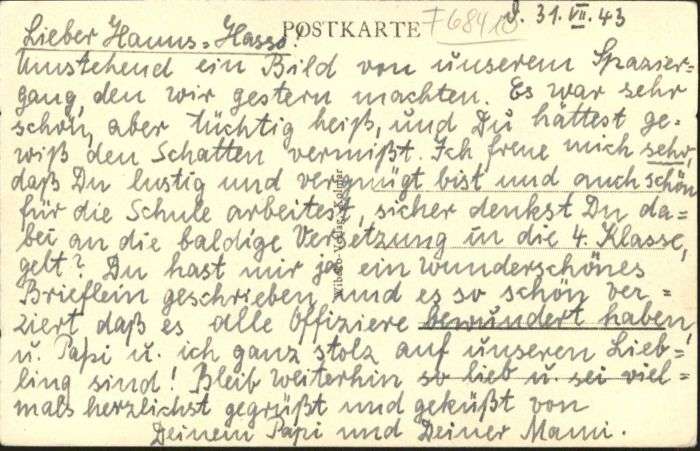 POSTKARTE
F 68410
d. 31. VII. 43
Lieber Hanns-Hasso!
Umstehend ein Bild von unserem Spazier=
gang, den wir gestern machten. Es war sehr
schön, aber tüchtig heiß, und Du hättest ge=
wiß den Schatten vermißt. Ich freue mich sehr,
daß Du lustig und vergnügt bist und auch schön
für die Schule arbeitest, sicher denkst Du da=
bei an die baldige Versetzung in die 4. Klasse,
gelt? Du hast mir ja ein wunderschönes
Brieflein geschrieben und es so schön ver=
ziert daß es alle Offiziere bewundert haben,
u. Papi u. ich ganz stolz auf unseren Lieb=
ling sind! Bleib weiterhin so lieb u. sei viel=
mals herzlichst gegrüßt und geküßt von
Deinem Papi und Deiner Mami.